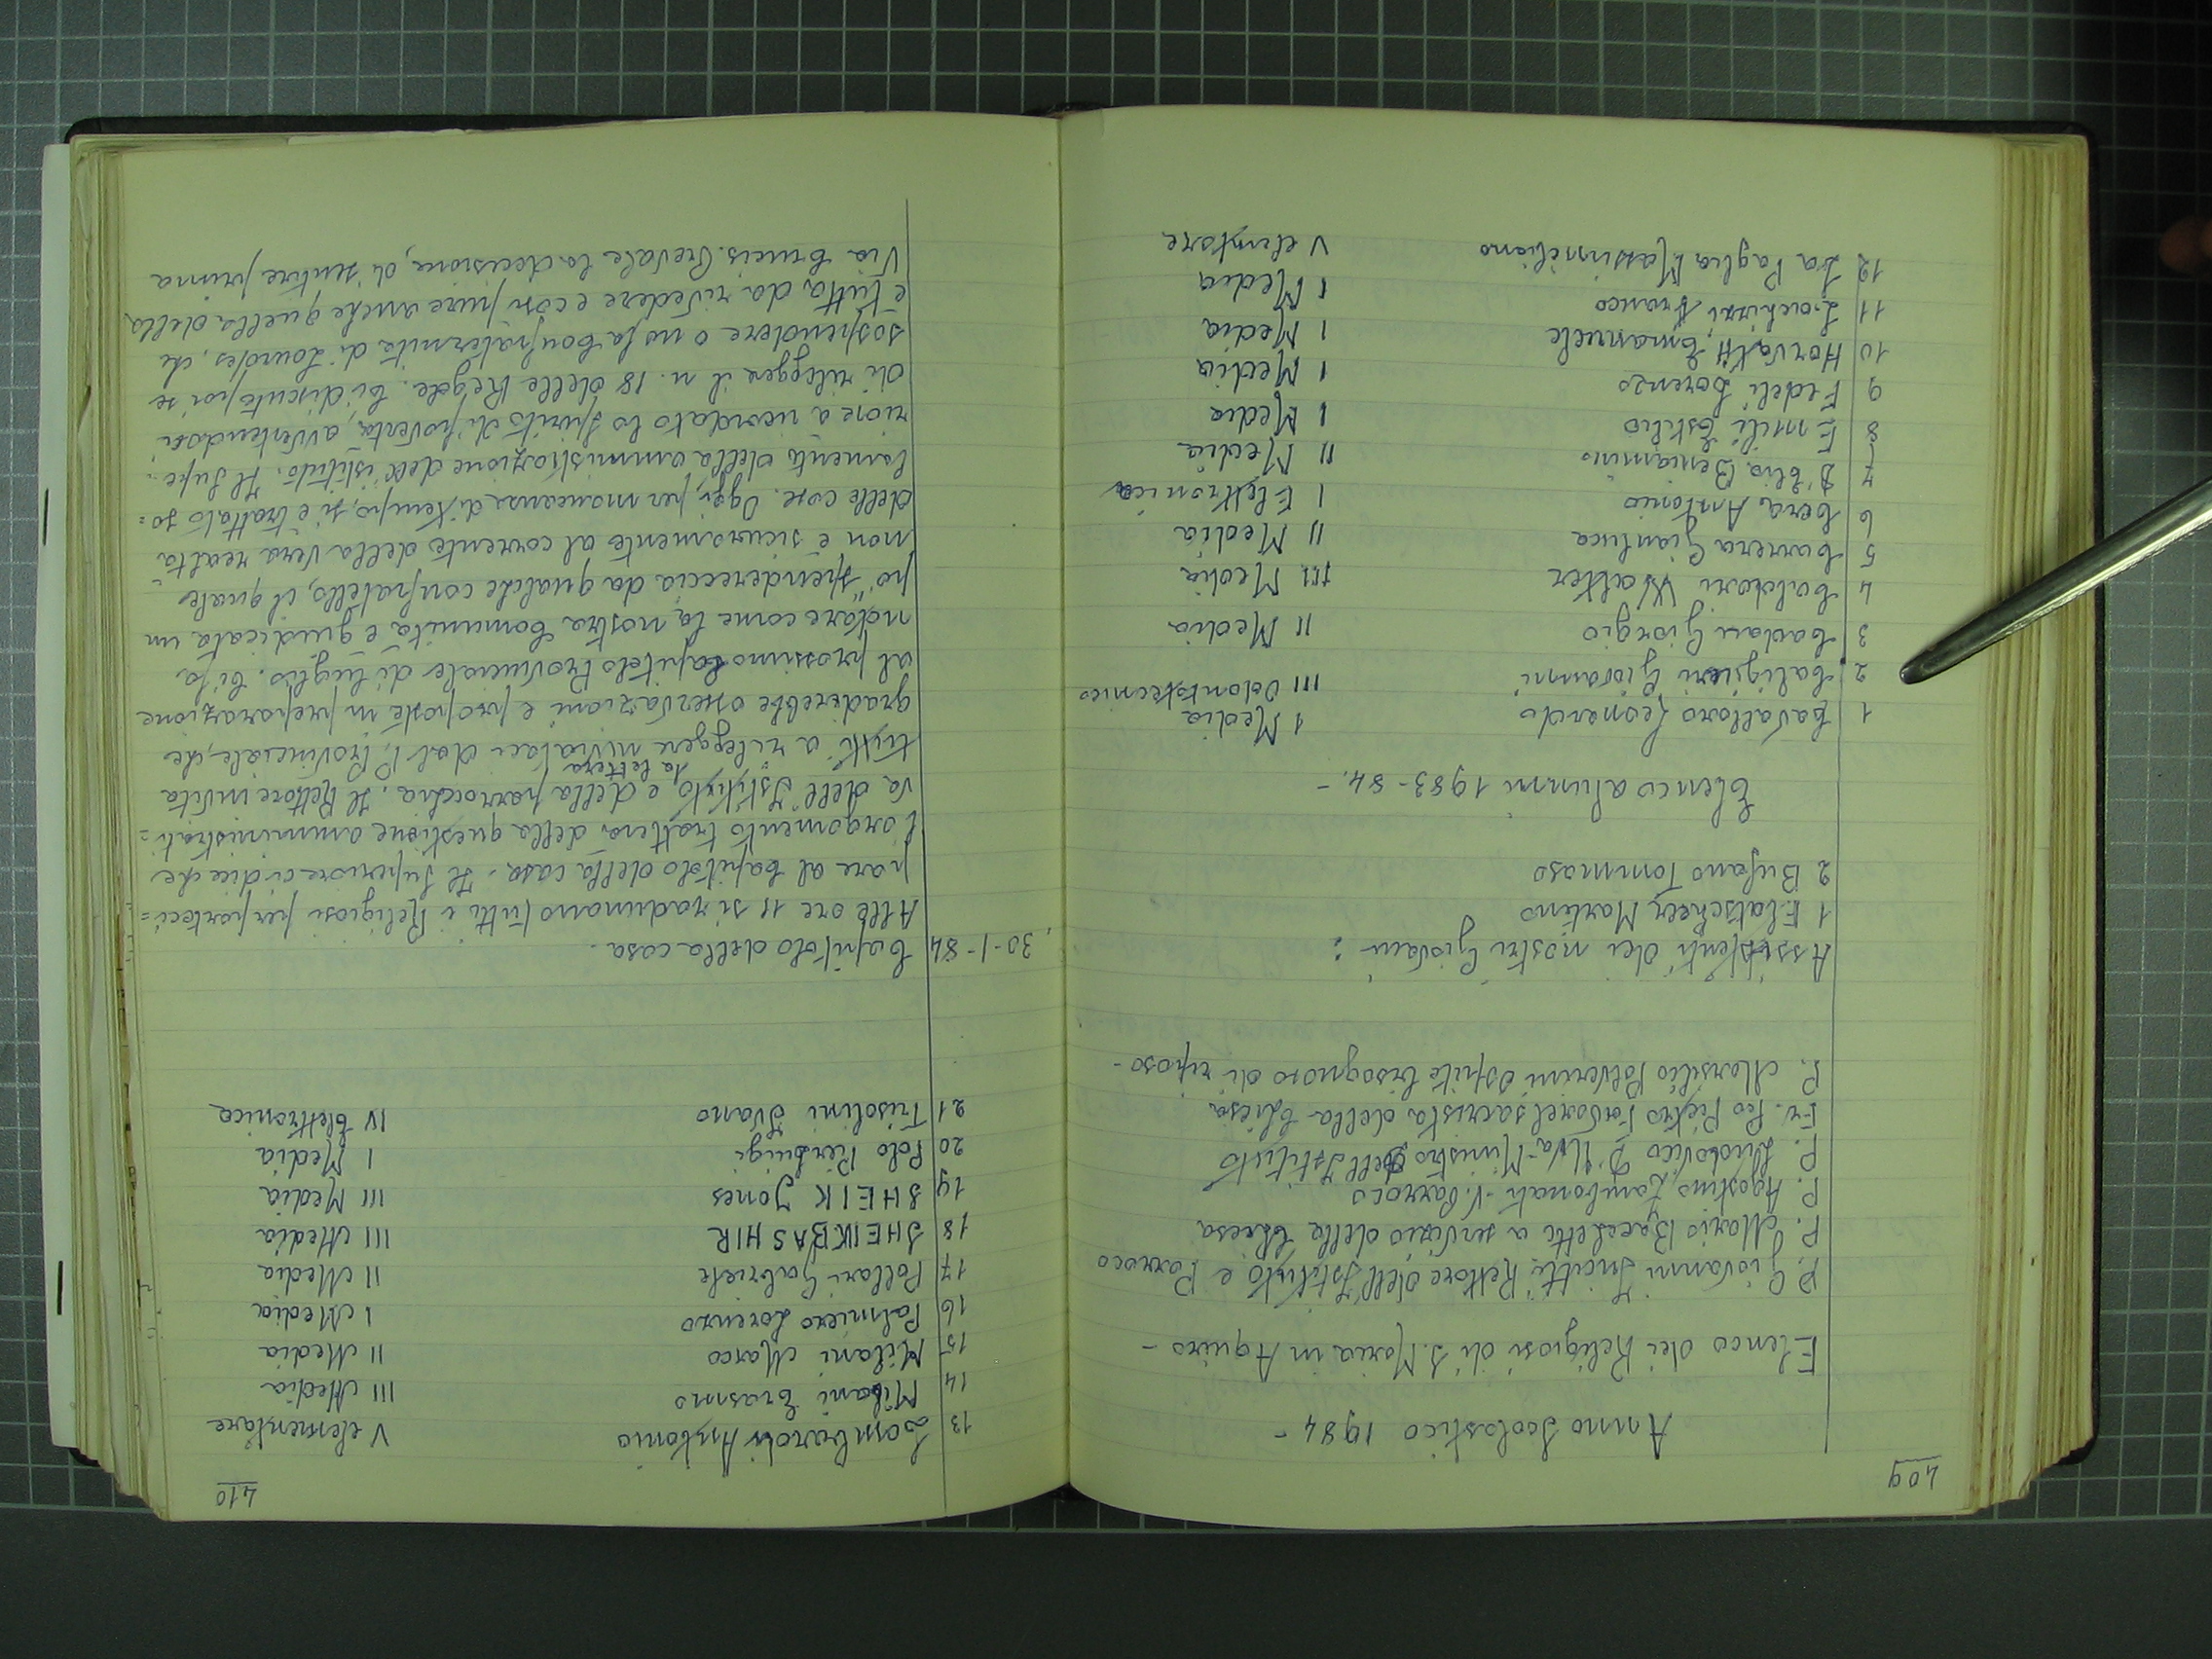 409
Anno Scolastico 1984 -
Elenco dei Religiosi di S. Maria in Aquiro -
P. Giovanni Rettore dell'Istituto e Parroco
P. Mario Bacchetti a servizio della Chiesa
P. Agostino Zambonati - V. Parroco
P. Ludovico D' Uva - Ministro dell'Istituto
Fr. Pietro sacrista della Chiesa
P. Marsilio Polverini ospite bisognoso di riposo -
Assistenti dei nostri Giovani:
1 Martino
2 Bufano Tommaso
Elenco alunni 1983-84. -
1 Cavallaro Leonardo 1 Media
2 Caligieri Giovanni III Odontotecnico
3 Cadari Giorgio II Media
4 Caldari Walter III Media
5 Carrera Gianluca II Media
6 Cera Antonio I Elettronica
7 D'Elia Beniamino II Media
8 Emili Estilio I Media
9 Fedeli Lorenzo I Media
10 HorvatH Emanuele I Media
11 Franco I Media
12 La Paglia Massimiliano V elemtare
410
13 Lombardi Antonio V elementare
14 Milani Erasmo III Media
15 Milani Marco II Media
16 Palmiero Lorenzo I Media
17 Pollari Gabriele II Media
18 SHEIK BASHIR III Media
19 SHEIK Jones III Media
20 Polo Pierluigi I Media
21 Trisolini Ivano IV Elettronica
30-1-84 Capitolo della casa.
Alle ore 11 si radunano tutti i Religiosi per parteci=
pare al Capitolo della casa. Il Superiore ci dice che
l'argomento tratterà della questione amministrati=
va dell'Istituto e della parrocchia. Il Rettore invita
tutti a rileggere la lettera inviataci dal P. Provinciale, che
gradirebbe osservazioni e proposte in preparazione
al prossimo Capitolo Provinciale di luglio. Ci fa
notare come la nostra Comunità è giudicata un
po' "spendereccia" da qualche confratello, il quale
non è sicuramente al corrente della vera realtà
delle cose. Oggi, per mancanza di tempo, si è trattato so=
lamente della amministrazione dell'istituto. Il Supe=
riore à ricordato lo spirito di povertà, avvertendoci
di rileggere il n. 18 delle Regole. Si discute poi se
sospendere o no la Confraternita di Lourdes, che
è tutta da rivedere e così pure anche quella della
Via Crucis. Prevale la decisione, di sentire prima